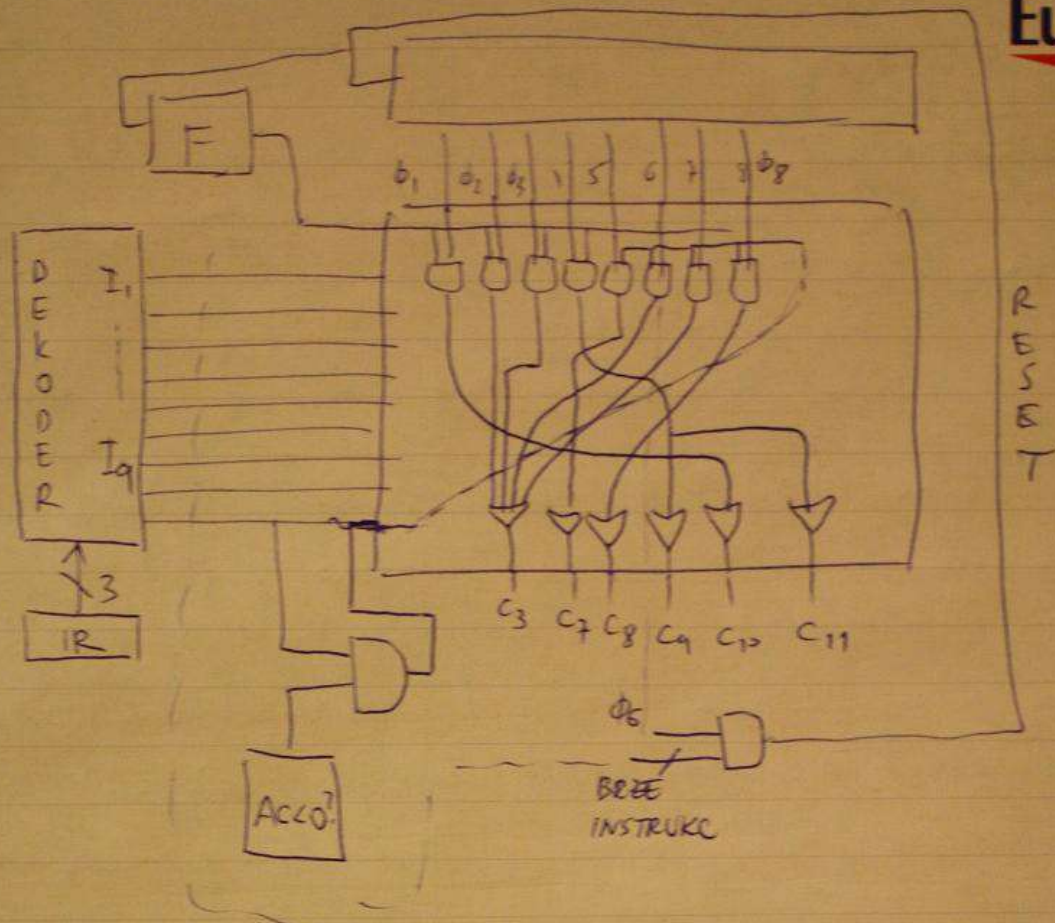 Eu
F
Φ1 Φ2 Φ3 5 6 7 8 Φ8
DEKODER
I1
I9
RESET
3
IR
C3 C7 C8 C9 C10 C11
Φ6
BRZE
INSTRUKC
AC<0?